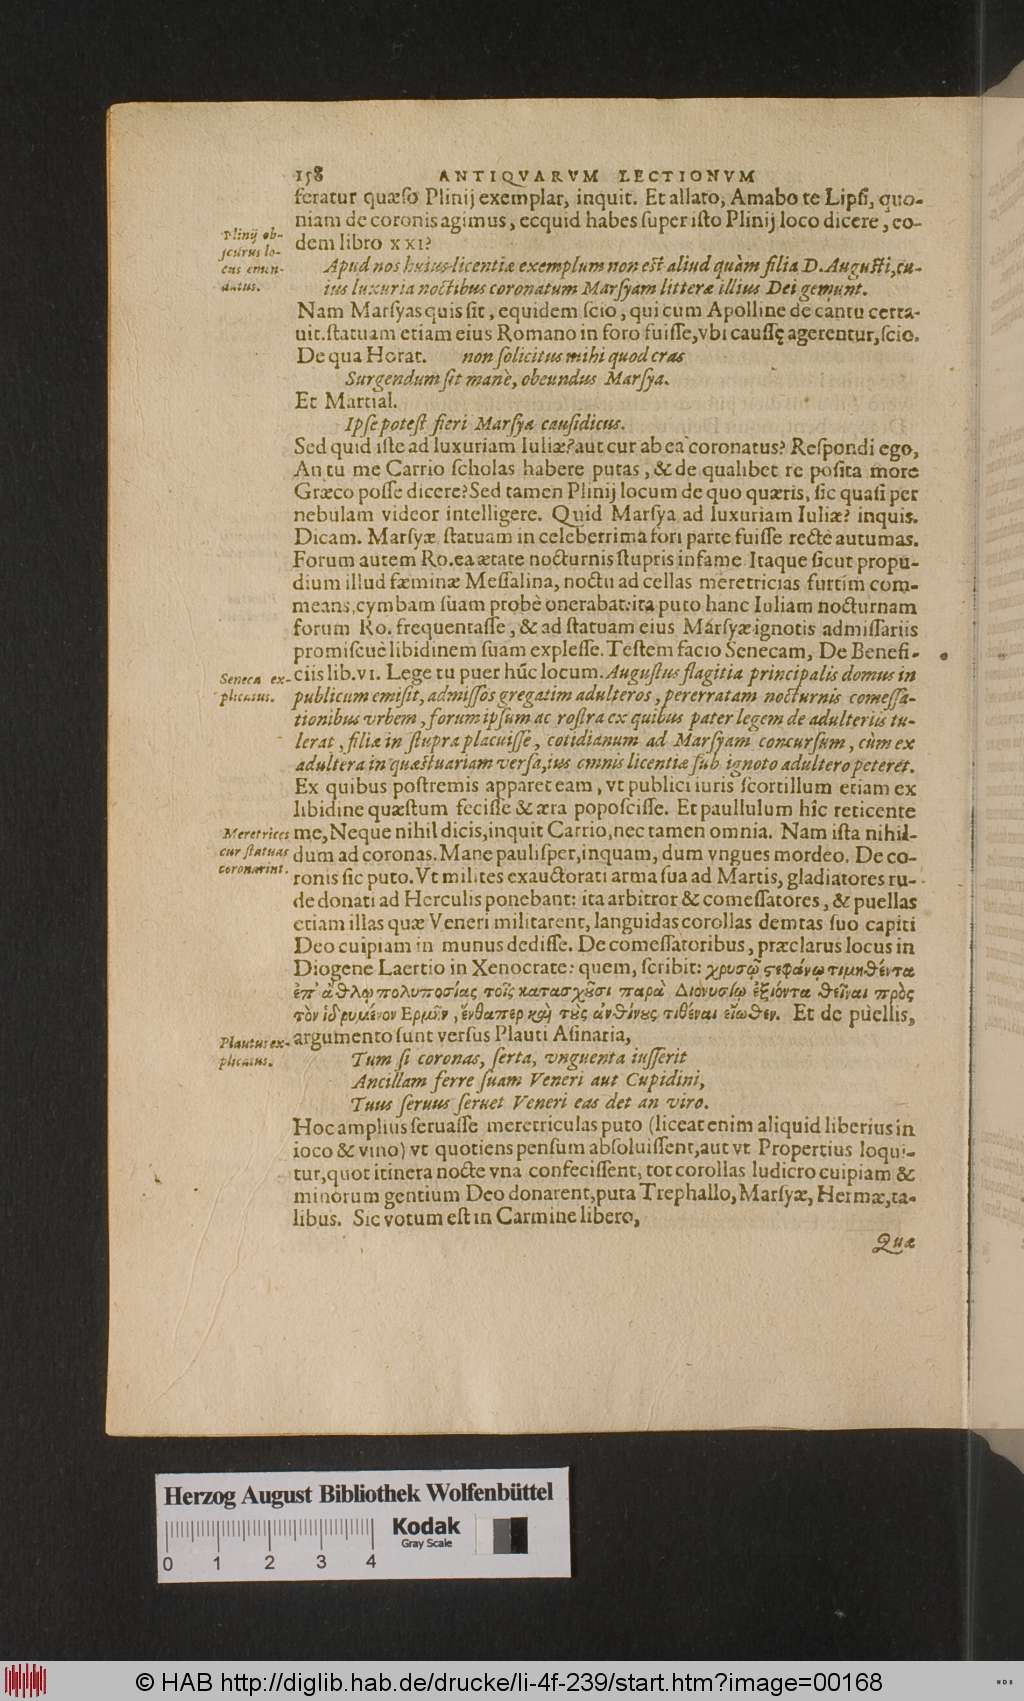 158 ANTIQVARVM LECTIONVM
feratur quæſo Plinij exemplar, inquit. Et allato, Amabo te Lipſi, quo-
niam de coronis agimus, ecquid habes ſuper iſto Plinij loco dicere, eo-
dem libro XXI?
Plinij ob-
ſcurus lo-
cus emen-
datus.
Apud nos huius licentiæ exemplum non eſt aliud quàm filia D. Auguſti, cu-
ius luxuria noctibus coronatum Marſyam litteræ illius Dei gemunt.
Nam Marſyas quis ſit, equidem ſcio, qui cum Apolline de cantu certa-
uit. ſtatuam etiam eius Romano in foro fuiſſe, vbi cauſſę agerentur, ſcio.
De qua Horat. non ſolicitus mihi quod cras
Surgendum ſit manè, obeundus Marſya.
Et Martial.
Ipſe poteſt fieri Marſya cauſidicus.
Sed quid iſte ad luxuriam Iuliæ? aut cur ab ea coronatus? Reſpondi ego,
An tu me Carrio ſcholas habere putas, & de qualibet re poſita more
Græco poſſe dicere? Sed tamen Plinij locum de quo quæris, ſic quaſi per
nebulam videor intelligere. Quid Marſya ad luxuriam Iuliæ? inquis.
Dicam. Marſyæ ſtatuam in celeberrima fori parte fuiſſe rectè autumas.
Forum autem Ro. ea ætate nocturnis ſtupris infame. Itaque ſicut propu-
dium illud fæminæ Meſſalina, noctu ad cellas meretricias furtim com-
means, cymbam ſuam probè onerabat: ita puto hanc Iuliam nocturnam
forum Ro. frequentaſſe, & ad ſtatuam eius Marſyæ ignotis admiſſariis
promiſcuè libidinem ſuam expleſſe. Teſtem facio Senecam, De Benefi-
ciis lib. VI. Lege tu puer hûc locum. Auguſtus flagitia principalis domus in
Seneca ex-
plicatus.
publicum emiſit, admiſſos gregatim adulteros, pererratam nocturnis comeſſa-
tionibus vrbem, forum ipſum ac roſtra ex quibus pater legem de adulteriis tu-
lerat, filiæ in ſtupra placuiſſe, cotidianum ad Marſyam concurſum, cùm ex
adultera in quæſtuariam verſa, ius omnis licentiæ ſub ignoto adultero peteret.
Ex quibus poſtremis apparet eam, vt publici iuris ſcortillum etiam ex
libidine quæſtum feciſſe & æra popoſciſſe. Et paullulum hîc reticente
me, Neque nihil dicis, inquit Carrio, nec tamen omnia. Nam iſta nihil-
Meretrices
cur ſtatuas
coronarint.
dum ad coronas. Mane pauliſper, inquam, dum vngues mordeo. De co-
ronis ſic puto. Vt milites exauctorati arma ſua ad Martis, gladiatores ru-
de donati ad Herculis ponebant: ita arbitror & comeſſatores, & puellas
etiam illas quæ Veneri militarent, languidas corollas demtas ſuo capiti
Deo cuipiam in munus dediſſe. De comeſſatoribus, præclarus locus in
Diogene Laertio in Xenocrate: quem, ſcribit: χρυσῷ στεφάνῳ τιμηθέντα
ἐπ' ἄθλῳ πολυποσίας τοῖς κατασχοῦσι παρὰ Διονυσίῳ ἐξιόντα θεῖναι πρὸς
τὸν ἱδρυμένον Ερμῆν, ἔνθαπερ καὶ τοὺς ἀνθίνους τιθέναι εἴωθεν. Et de puellis,
argumento ſunt verſus Plauti Aſinaria,
Plautus ex-
plicatus.
Tum ſi coronas, ſerta, vnguenta iuſſerit
Ancillam ferre ſuam Veneri aut Cupidini,
Tuus ſeruus ſeruet Veneri eas det an viro.
Hoc amplius ſeruaſſe meretriculas puto (liceat enim aliquid liberius in
ioco & vino) vt quotiens penſum abſoluiſſent, aut vt Propertius loqui-
tur, quot itinera nocte vna confeciſſent, tot corollas ludicro cuipiam &
minorum gentium Deo donarent, puta Trephallo, Marſyæ, Hermæ, ta-
libus. Sic votum eſt in Carmine libero,
Quæ
Herzog August Bibliothek Wolfenbüttel
Kodak
Gray Scale
0 1 2 3 4
© HAB http://diglib.hab.de/drucke/li-4f-239/start.htm?image=00168